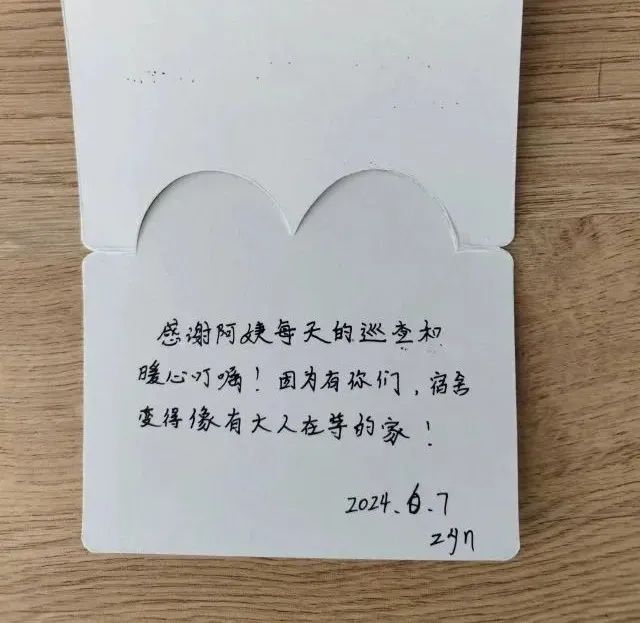 感谢阿姨每天的巡查和
暖心叮嘱！因为有你们，宿舍
变得像有大人在等的家！
2024.6.7